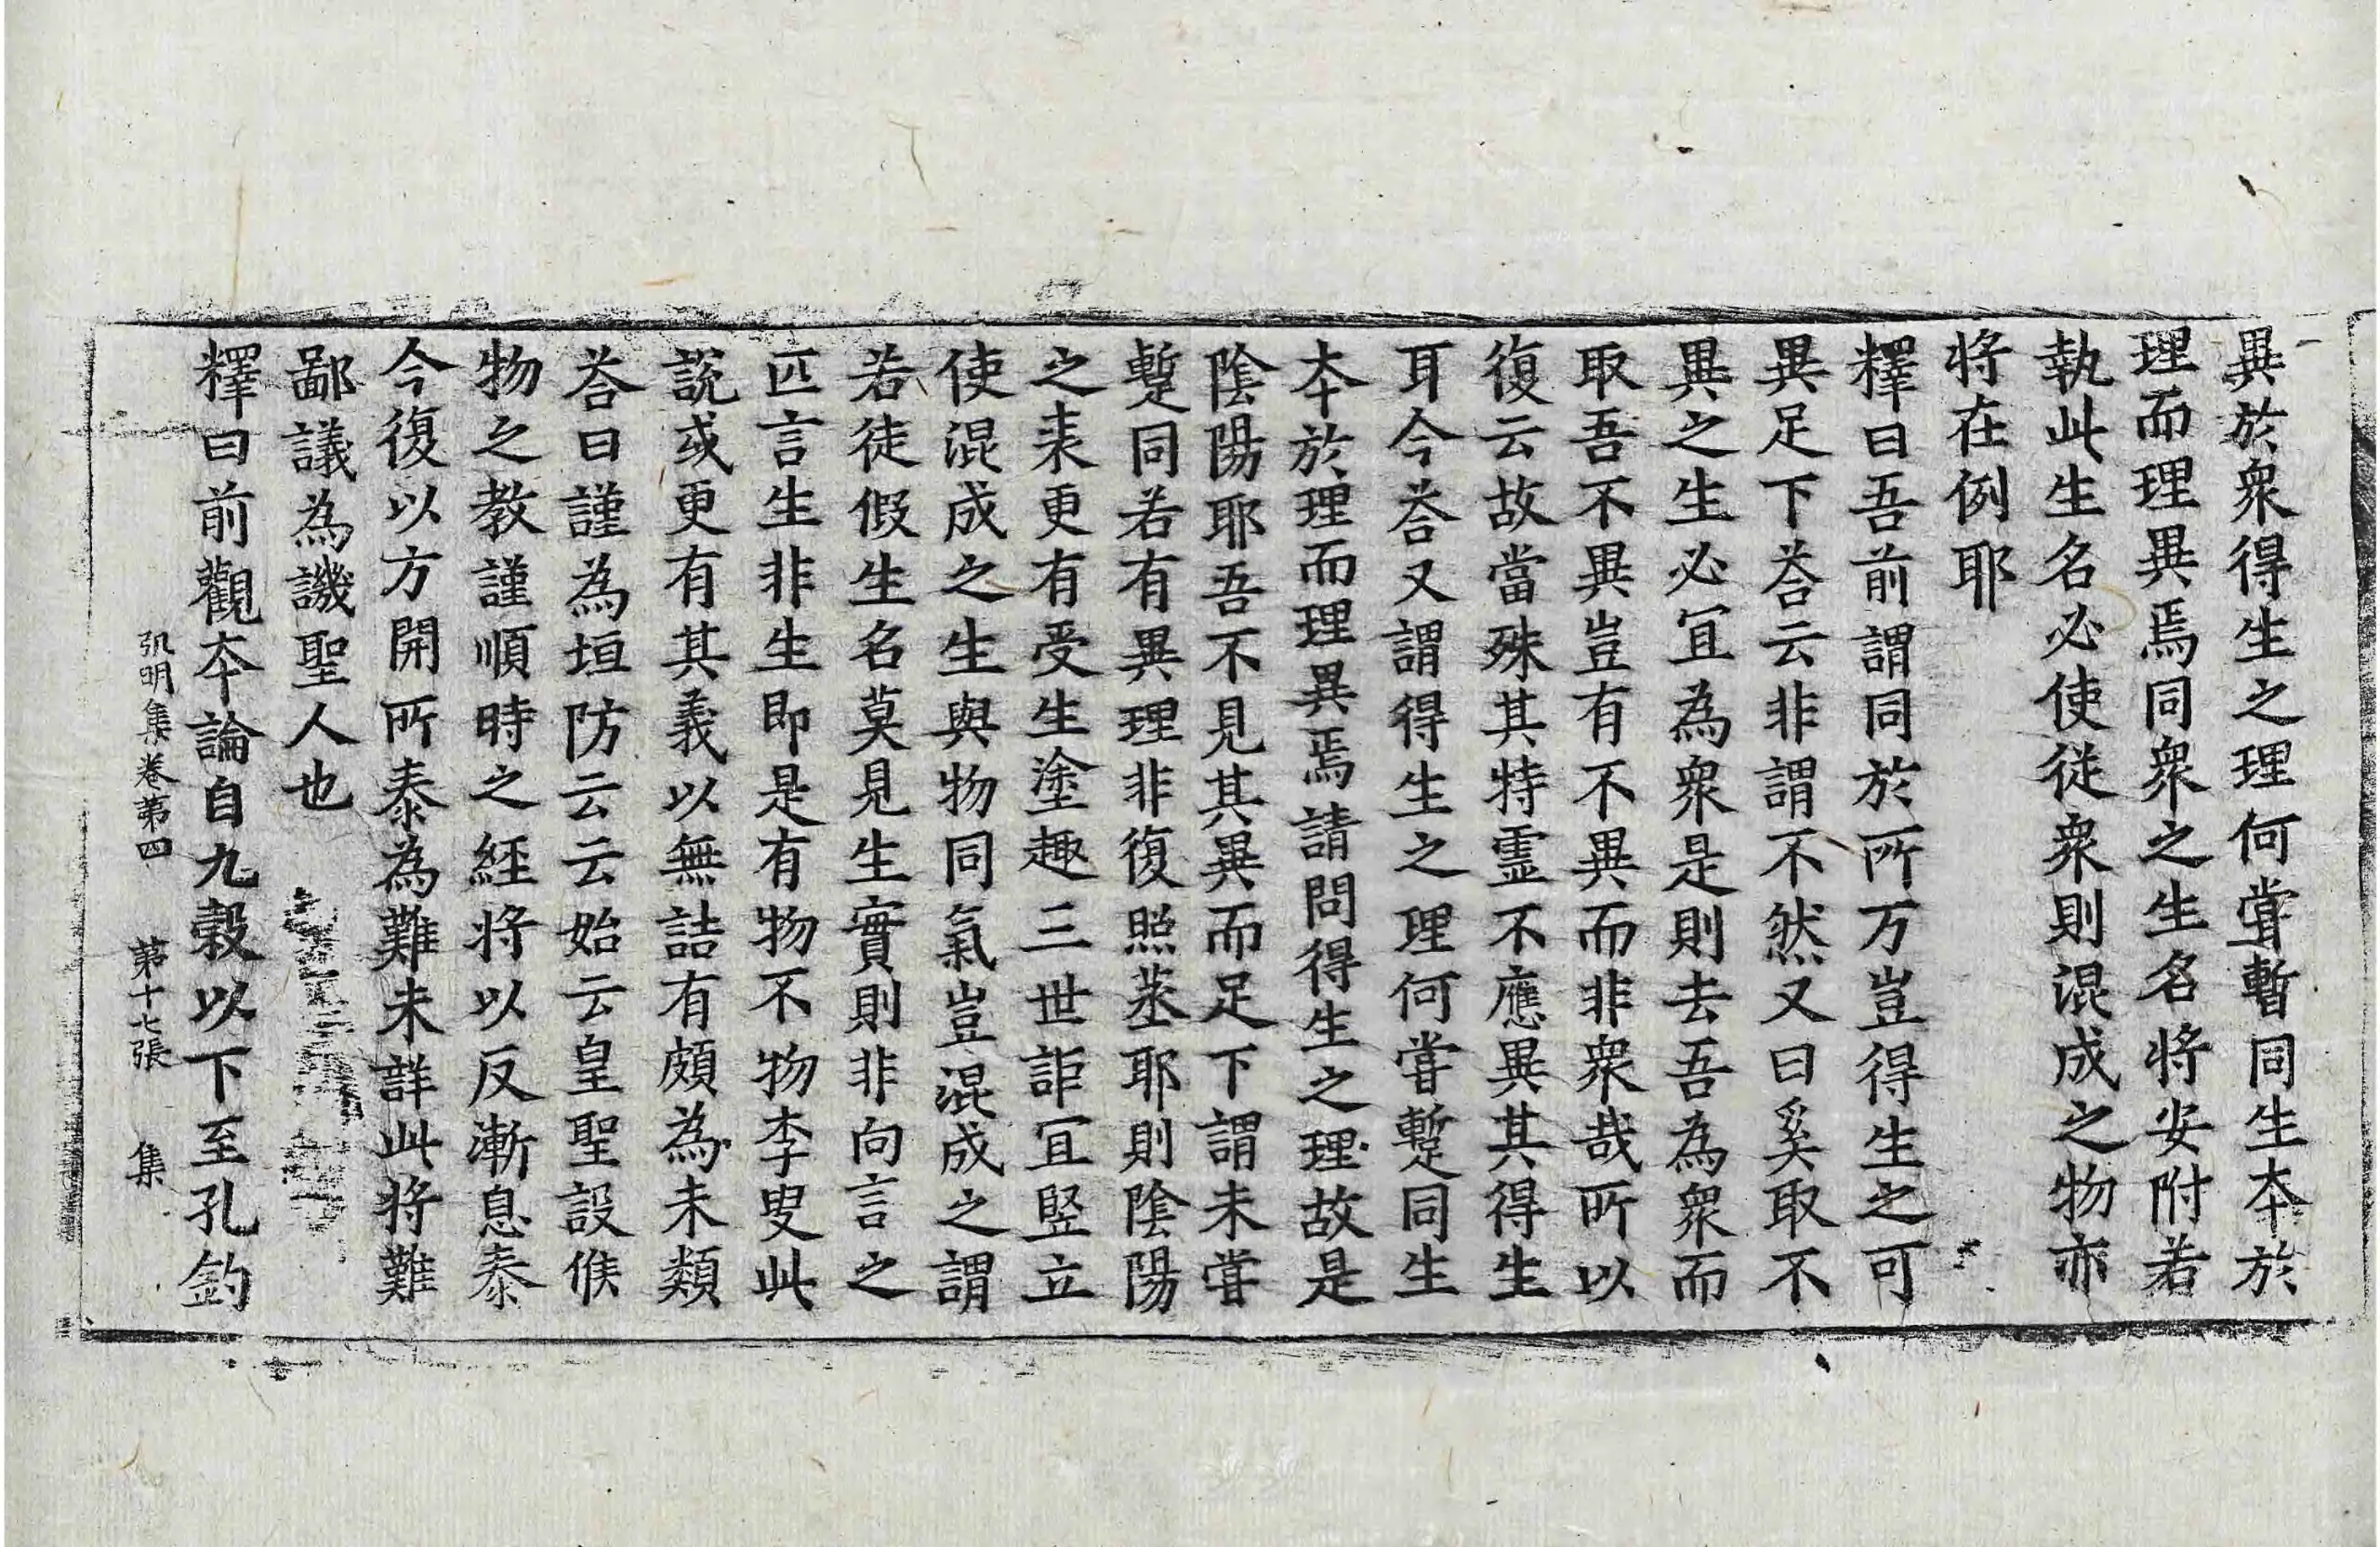 異於衆得生之理何嘗暫同生夲於
理而理異焉同衆之生名將安附若
執此生名必使從衆則混成之物亦
将在例耶
釋曰吾前謂同於所万豈得生之可
異足下荅云非謂不然又曰奚取不
異之生必冝為衆是則去吾為衆而
取吾不異豈有不異而非衆哉所以
復云故當殊其特霊不應異其得生
耳今荅又謂得生之理何嘗蹔同生
夲於理而理異焉請問得生之理故是
陰陽耶吾不見其異而足下謂未嘗
蹔同若有異理非復煦蒸耶則陰陽
之表更有受生塗趣三世詎冝竪立
使混成之生與物同氣豈混成之謂
若徒假生名莫見生實則非向言之
匹言生非生即是有物不物李叟此
說或更有其義以無詰有頗為未類
荅曰謹為垣防云云始云皇聖設候
物之教謹順時之經将以反漸息泰
今復以方開所泰為難未詳此将難
鄙議為譏聖人也
釋曰前觀夲論自九穀以下至孔釣
弘明集卷第四 第十七張 集